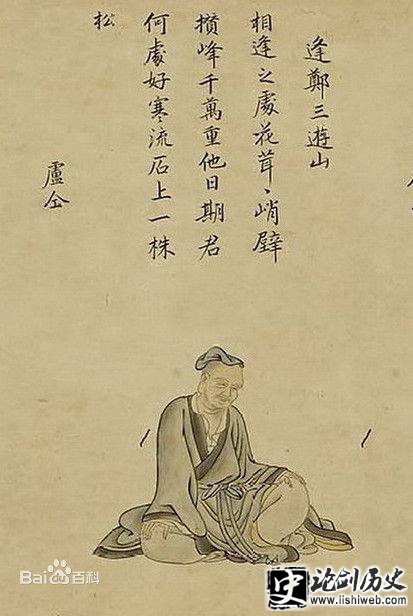 逢鄭三遊山
相逢之處花茸〻峭壁
攅峰千萬重他日期君
何處好寒流石上一株
松
盧仝
Bai百科
史 论剑历史
www.lishiweb.com